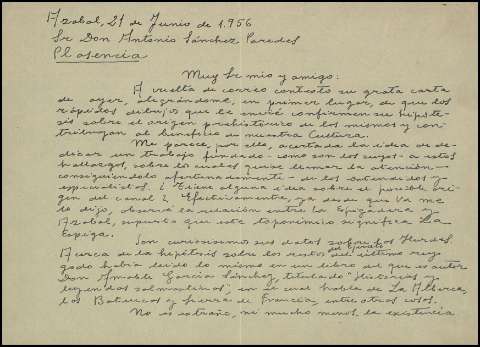 Azabal, 21 de Junio de 1.956
Sr Don Antonio Sánchez Paredes
Plasencia
Muy Sr mio y amigo:
A vuelta de correo contesto su grata carta
de ayer, alegrándome, en primer lugar, de que los
rápidos dibujos que le envié confirmen su hipóte-
sis sobre el origen prehistórico de los mismos y con-
tribuyan al beneficio de nuestra Cultura.
Me parece, por ello, acertada la idea de de-
dicar un trabajo fundado - como son los suyos - a estos
hallazgos, sobre los cuales quise llamar la atención -
consiguiéndolo afortunadamente - de los entendidos y
especialistas. ¿Tiene alguna idea sobre el posible ori-
gen del canal? Efectivamente, ya desde que Vd me
lo dijo, observé la relación entre la Espigadera y
Azabal, supuesto que este toponímico significa La
Espiga.
Son curiosísimos sus datos sobre las Hurdes.
Acerca de la hipótesis sobre los restos del último rey
godo había leido lo mismo en un libro del que es autor
Don Amable García Sánchez, titulado "Historias y
leyendas salmantinas", en el cual habla de La Alberca,
las Batuecas y sierra de Francia, entre otras cosas.
No es extraño, ni mucho menos, la existencia